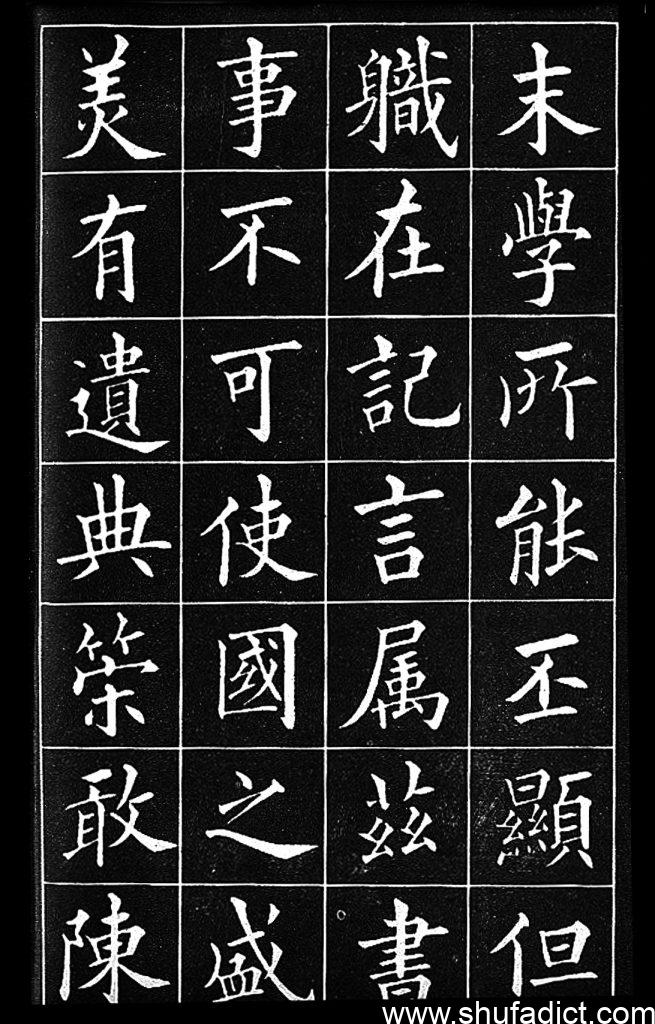 末學所能丕顯但
職在記言属茲書
事不可使國之盛
美有遺典策敢陳
www.shufadict.com